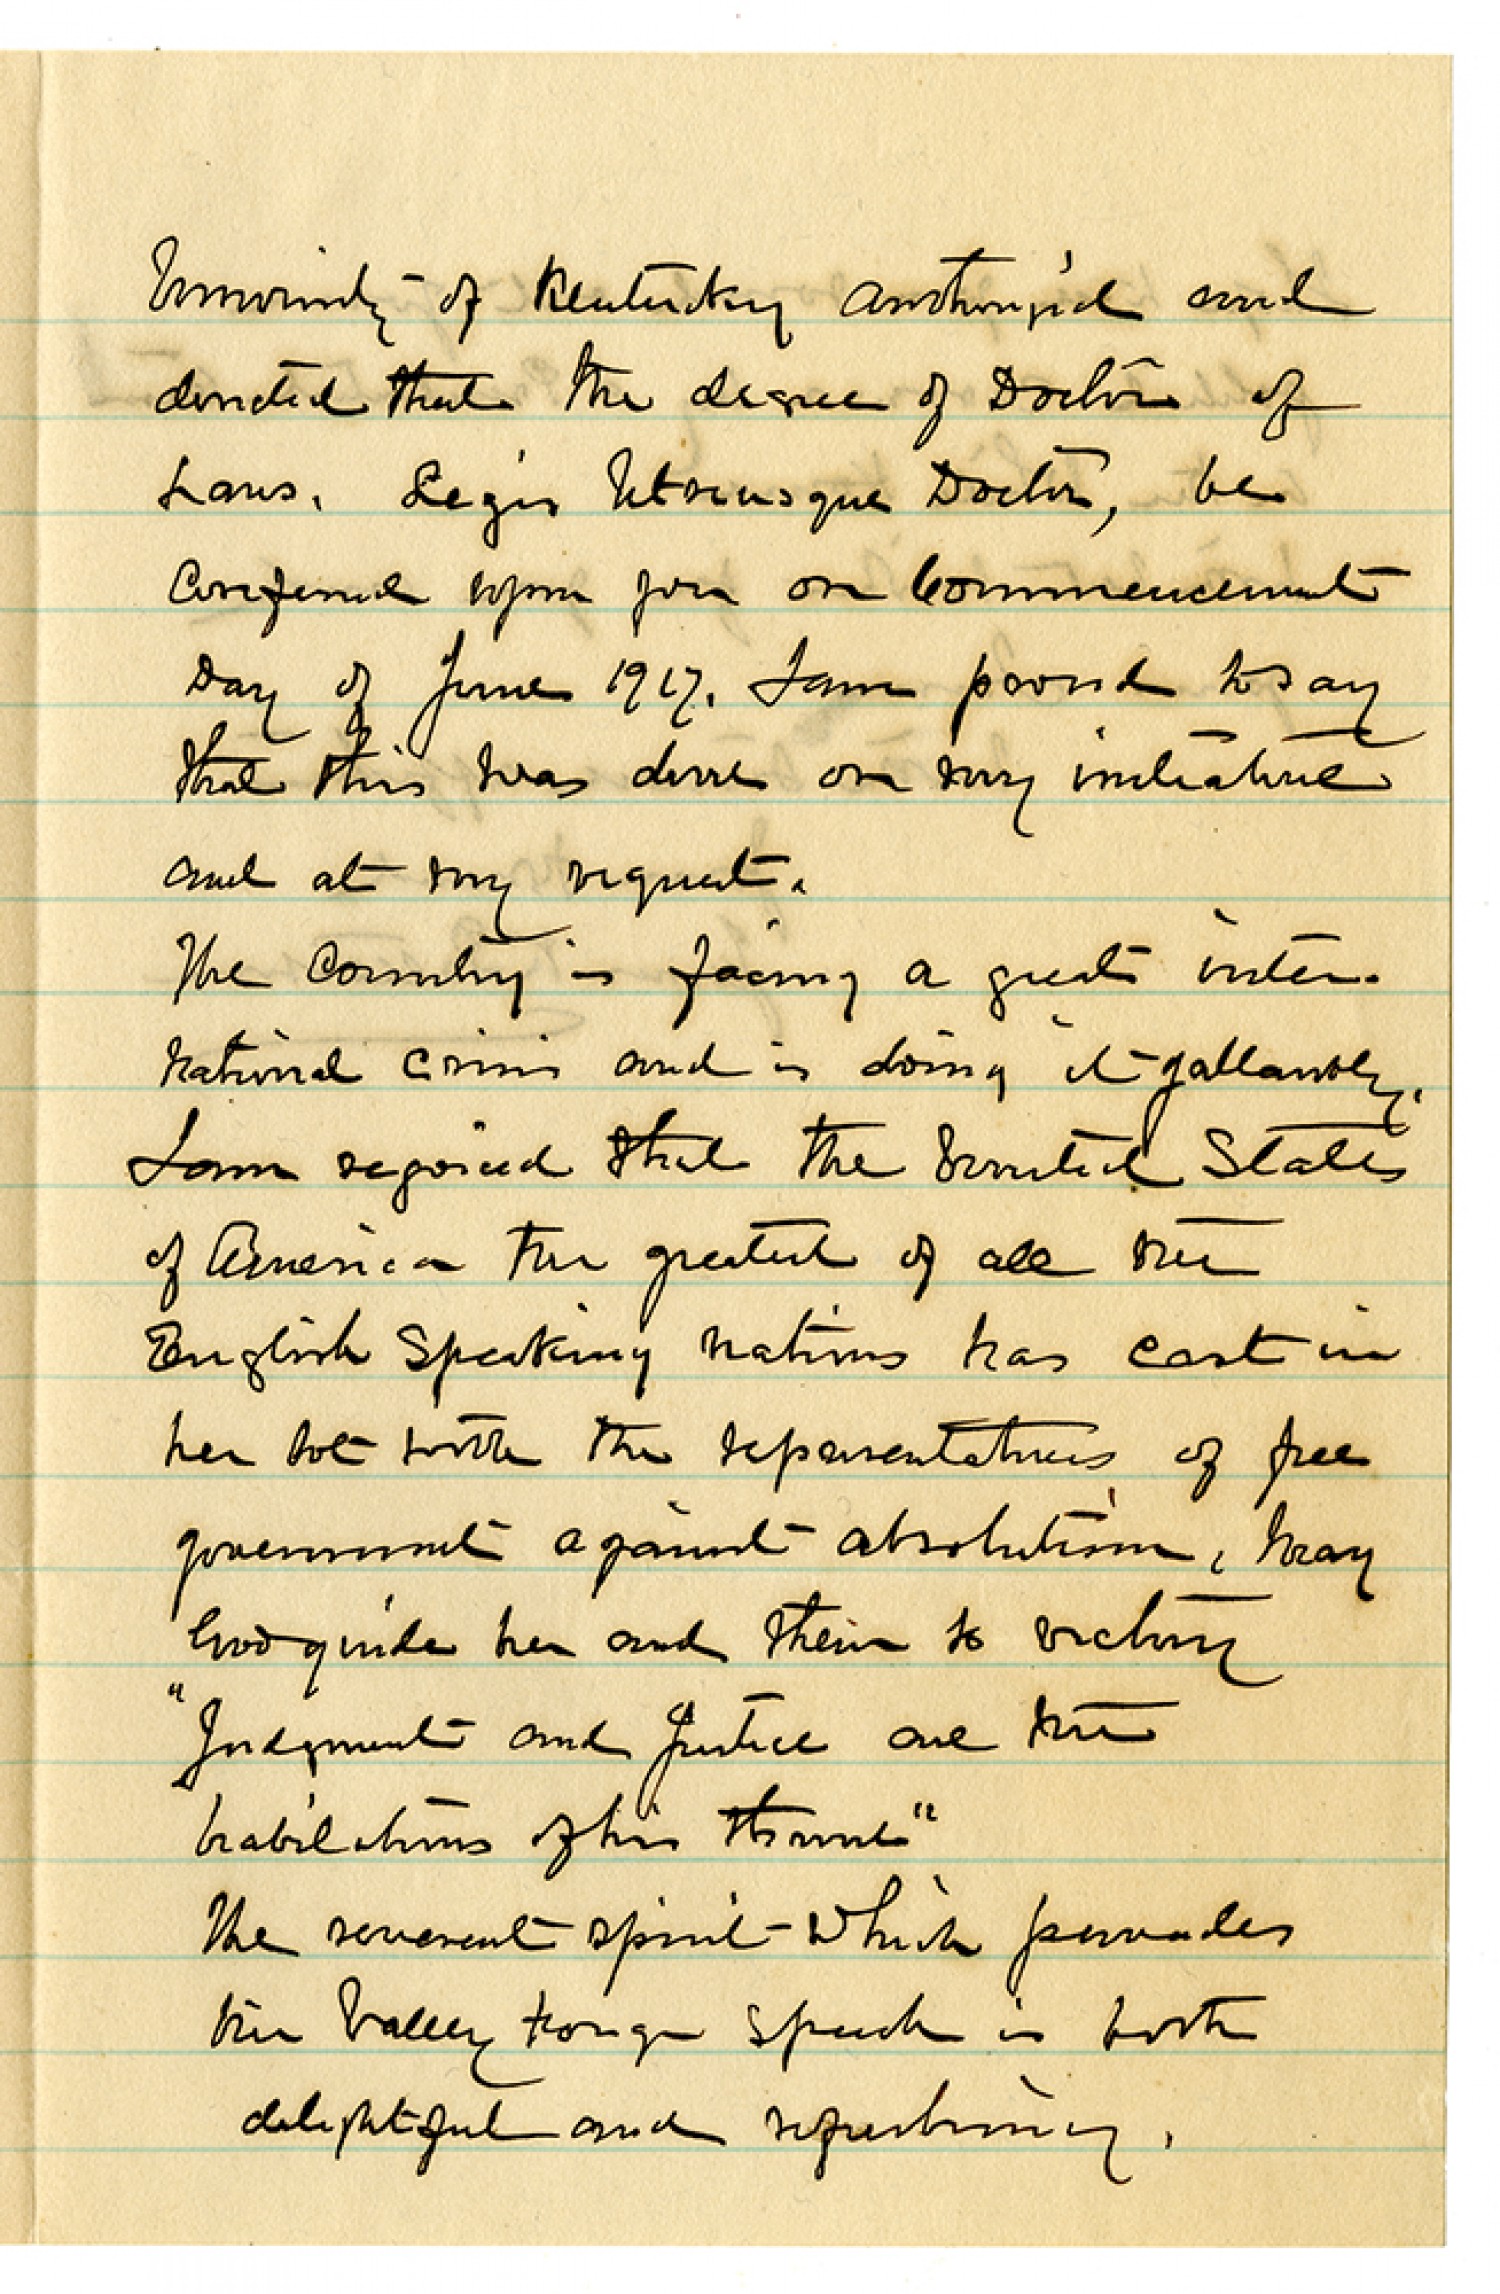 University of Kentucky authorized and
directed that the degree of Doctor of
Laws. Legis Utriusque Doctor, be
conferred upon you on Commencement
Day of June 1917. I am proud to say
that this was done on my initiative
and at my request.
The Country is facing a great inter-
national crisis and is doing it gallantly.
I am rejoiced that the United States
of America the greatest of all the
English Speaking nations has cast in
her lot with the representatives of free
government against absolutism, may
God guide her and them to victory
"Judgment and Justice are the
habilations of his throne"
The reverent spirit which pervades
the Valley Forge speech is both
delightful and refreshing.